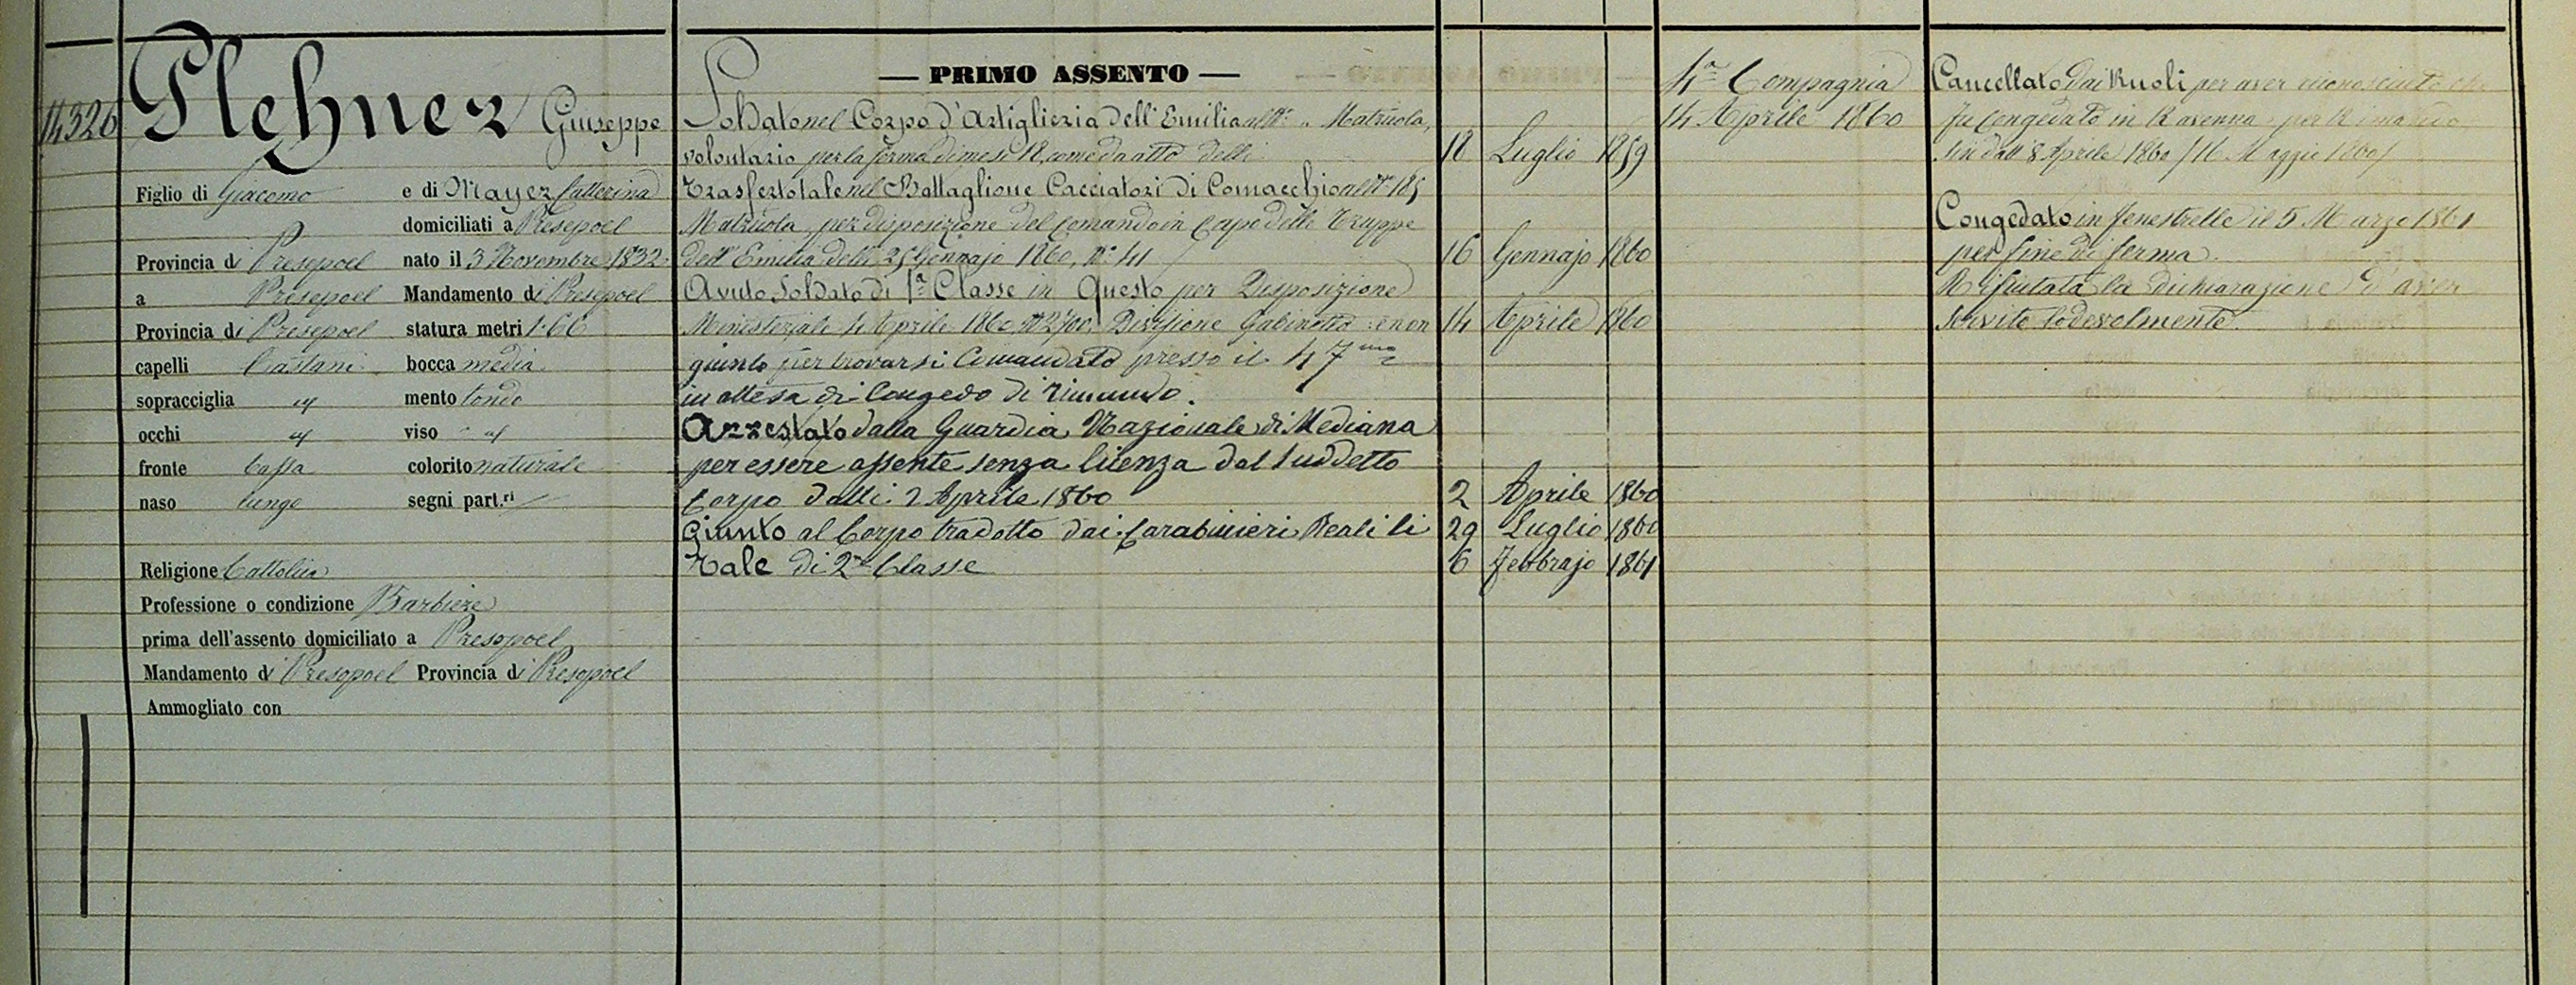 14326
Plehner Giuseppe
Figlio di Giacomo e di Mayer Catterina
domiciliati a Presepoel
Provincia di Presepoel nato il 3 Novembre 1832
a Presepoel Mandamento di Presepoel
Provincia di Presepoel statura metri 1.66
capelli Castani bocca media
sopracciglia id mento tondo
occhi id viso id
fronte bassa colorito naturale
naso lungo segni part.ri
Religione Cattolica
Professione o condizione Barbiere
prima dell'assento domiciliato a Presopoel
Mandamento di Presopoel Provincia di Presopoel
Ammogliato con
— PRIMO ASSENTO —
Soldato nel Corpo d'Artiglieria dell'Emilia al N.° „ Matricola,
volontario per la ferma di mesi 18, come da atto delli 18 Luglio 1859
Trasferto tale nel Battaglione Cacciatori di Comacchio al N° 185
Matricola, per disposizione del Comando in Capo delle Truppe
dell'Emilia delli 25 Gennajo 1860, N° 41 16 Gennajo 1860
Avuto Soldato di 1a Classe in Questo per Disposizione
Ministeriale 4 Aprile 1860 N° 2700. Divisione Gabinetto e non 14 Aprile 1860
giunto per trovarsi Comandato presso il 47mo
in attesa di Congedo di rimando.
Arrestato dalla Guardia Nazionale di Mediana
per essere assente senza licenza dal suddetto
Corpo dalli 2 Aprile 1860 2 Aprile 1860
Giunto al Corpo tradotto dai Carabinieri Reali li 29 Luglio 1860
Tale di 2a Classe 6 Febbrajo 1861
4a Compagnia
14 Aprile 1860
Cancellato dai Ruoli per aver riconosciuto che
fu Congedato in Ravenna per Rimando
sin dall' 8 Aprile 1860 /16 Maggio 1860/
Congedato in Fenestrelle il 5 Marzo 1861
per fine di ferma.
Rifiutata la dichiarazione d'aver
servito lodevolmente.